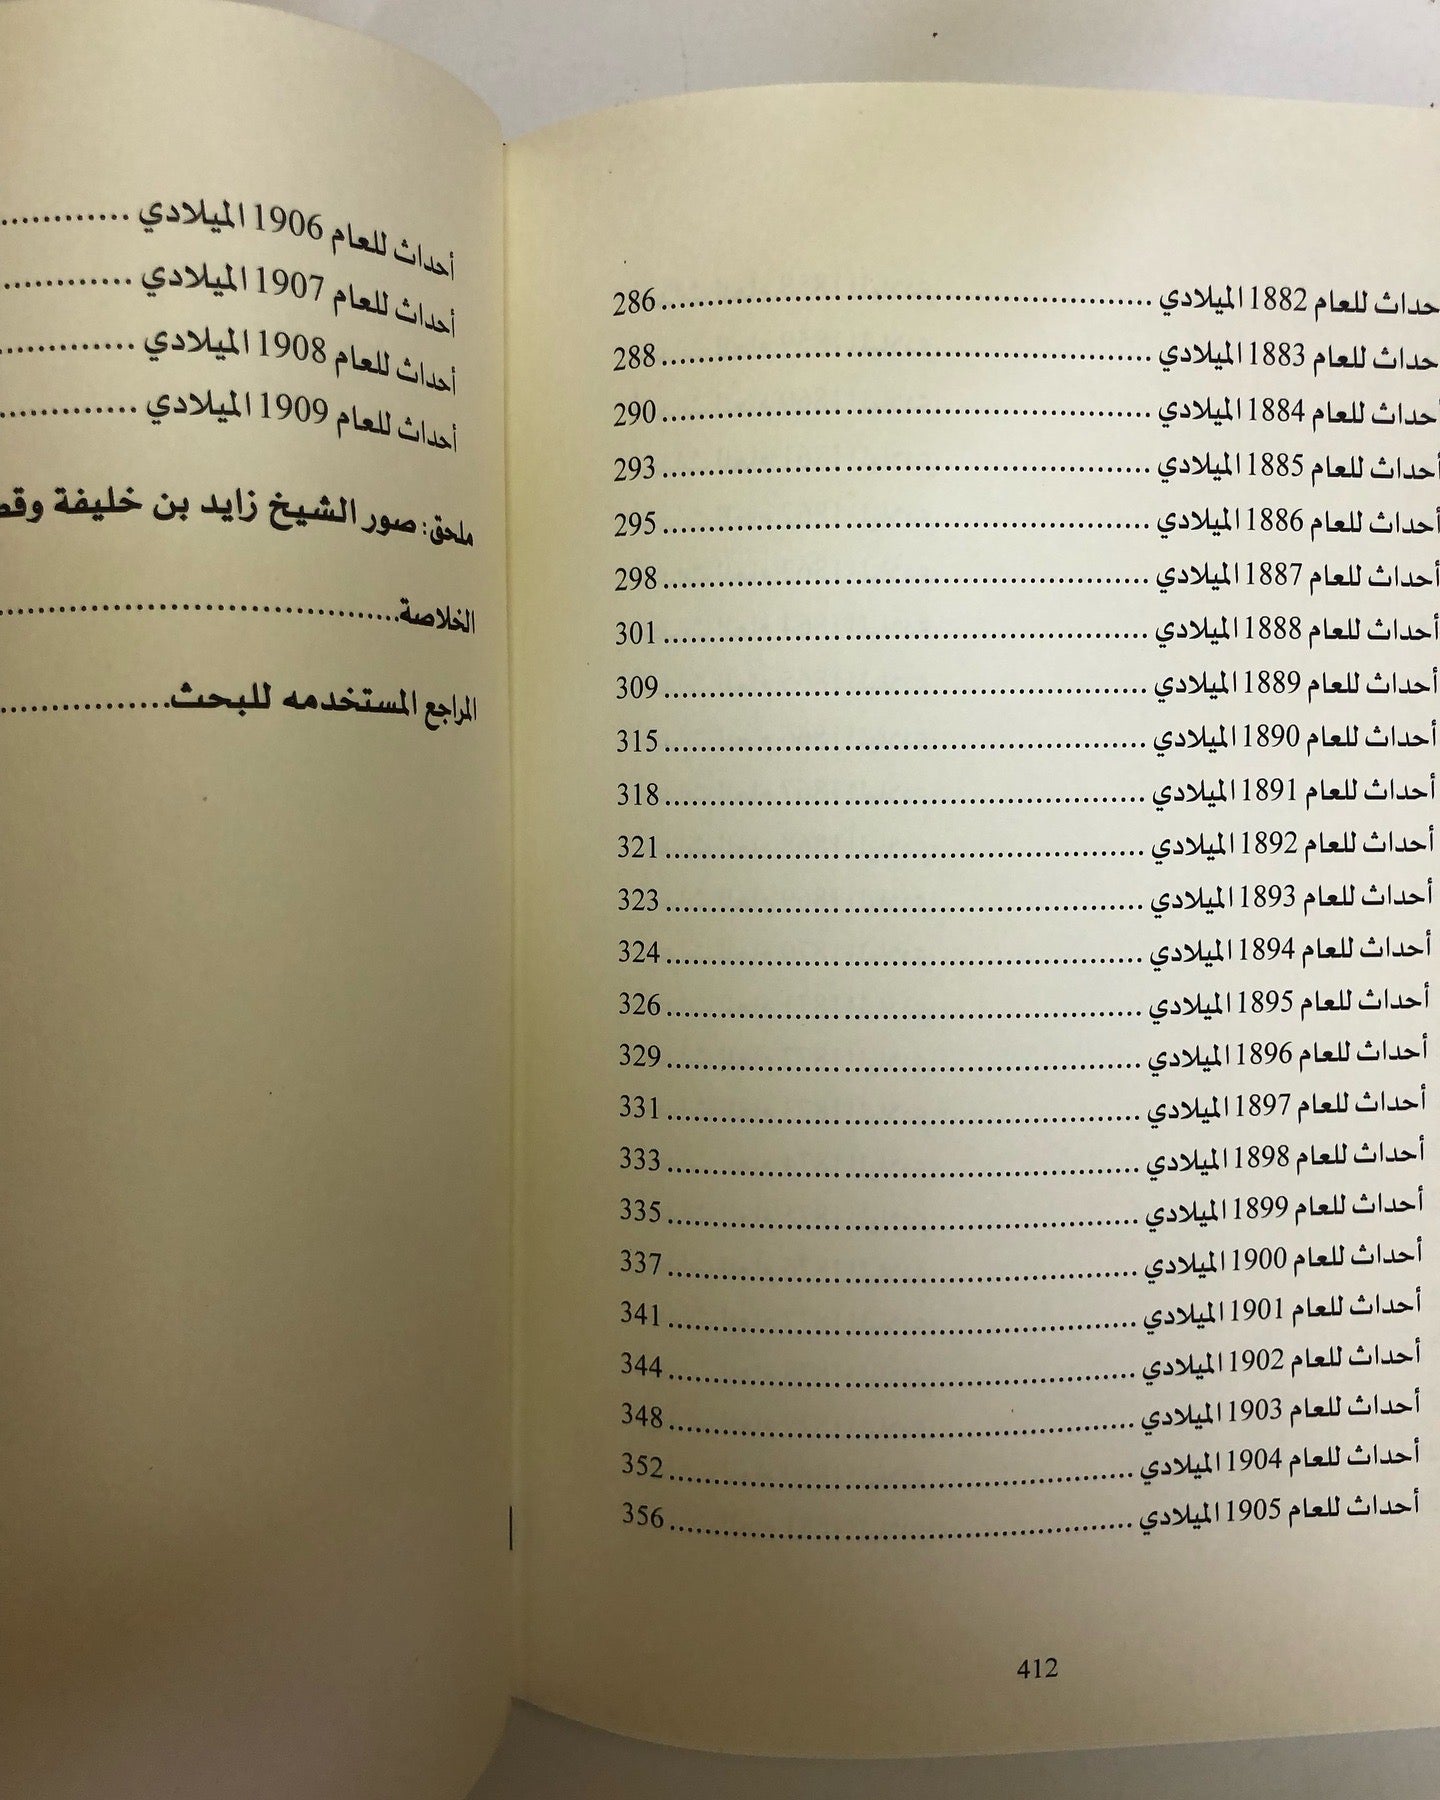 أحداث للعام 1882 الميلادي ........ 286
أحداث للعام 1883 الميلادي ........ 288
أحداث للعام 1884 الميلادي ........ 290
أحداث للعام 1885 الميلادي ........ 293
أحداث للعام 1886 الميلادي ........ 295
أحداث للعام 1887 الميلادي ........ 298
أحداث للعام 1888 الميلادي ........ 301
أحداث للعام 1889 الميلادي ........ 309
أحداث للعام 1890 الميلادي ........ 315
أحداث للعام 1891 الميلادي ........ 318
أحداث للعام 1892 الميلادي ........ 321
أحداث للعام 1893 الميلادي ........ 323
أحداث للعام 1894 الميلادي ........ 324
أحداث للعام 1895 الميلادي ........ 326
أحداث للعام 1896 الميلادي ........ 329
أحداث للعام 1897 الميلادي ........ 331
أحداث للعام 1898 الميلادي ........ 333
أحداث للعام 1899 الميلادي ........ 335
أحداث للعام 1900 الميلادي ........ 337
أحداث للعام 1901 الميلادي ........ 341
أحداث للعام 1902 الميلادي ........ 344
أحداث للعام 1903 الميلادي ........ 348
أحداث للعام 1904 الميلادي ........ 352
أحداث للعام 1905 الميلادي ........ 356
412
أحداث للعام 1906 الميلادي ........
أحداث للعام 1907 الميلادي ........
أحداث للعام 1908 الميلادي ........
أحداث للعام 1909 الميلادي ........
ملحق: صور الشيخ زايد بن خليفة
الخلاصة........
المراجع المستخدمه للبحث........